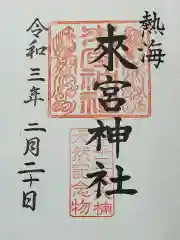 熱海
來宮神社
令和三年二月二十日
天然記念物
楠